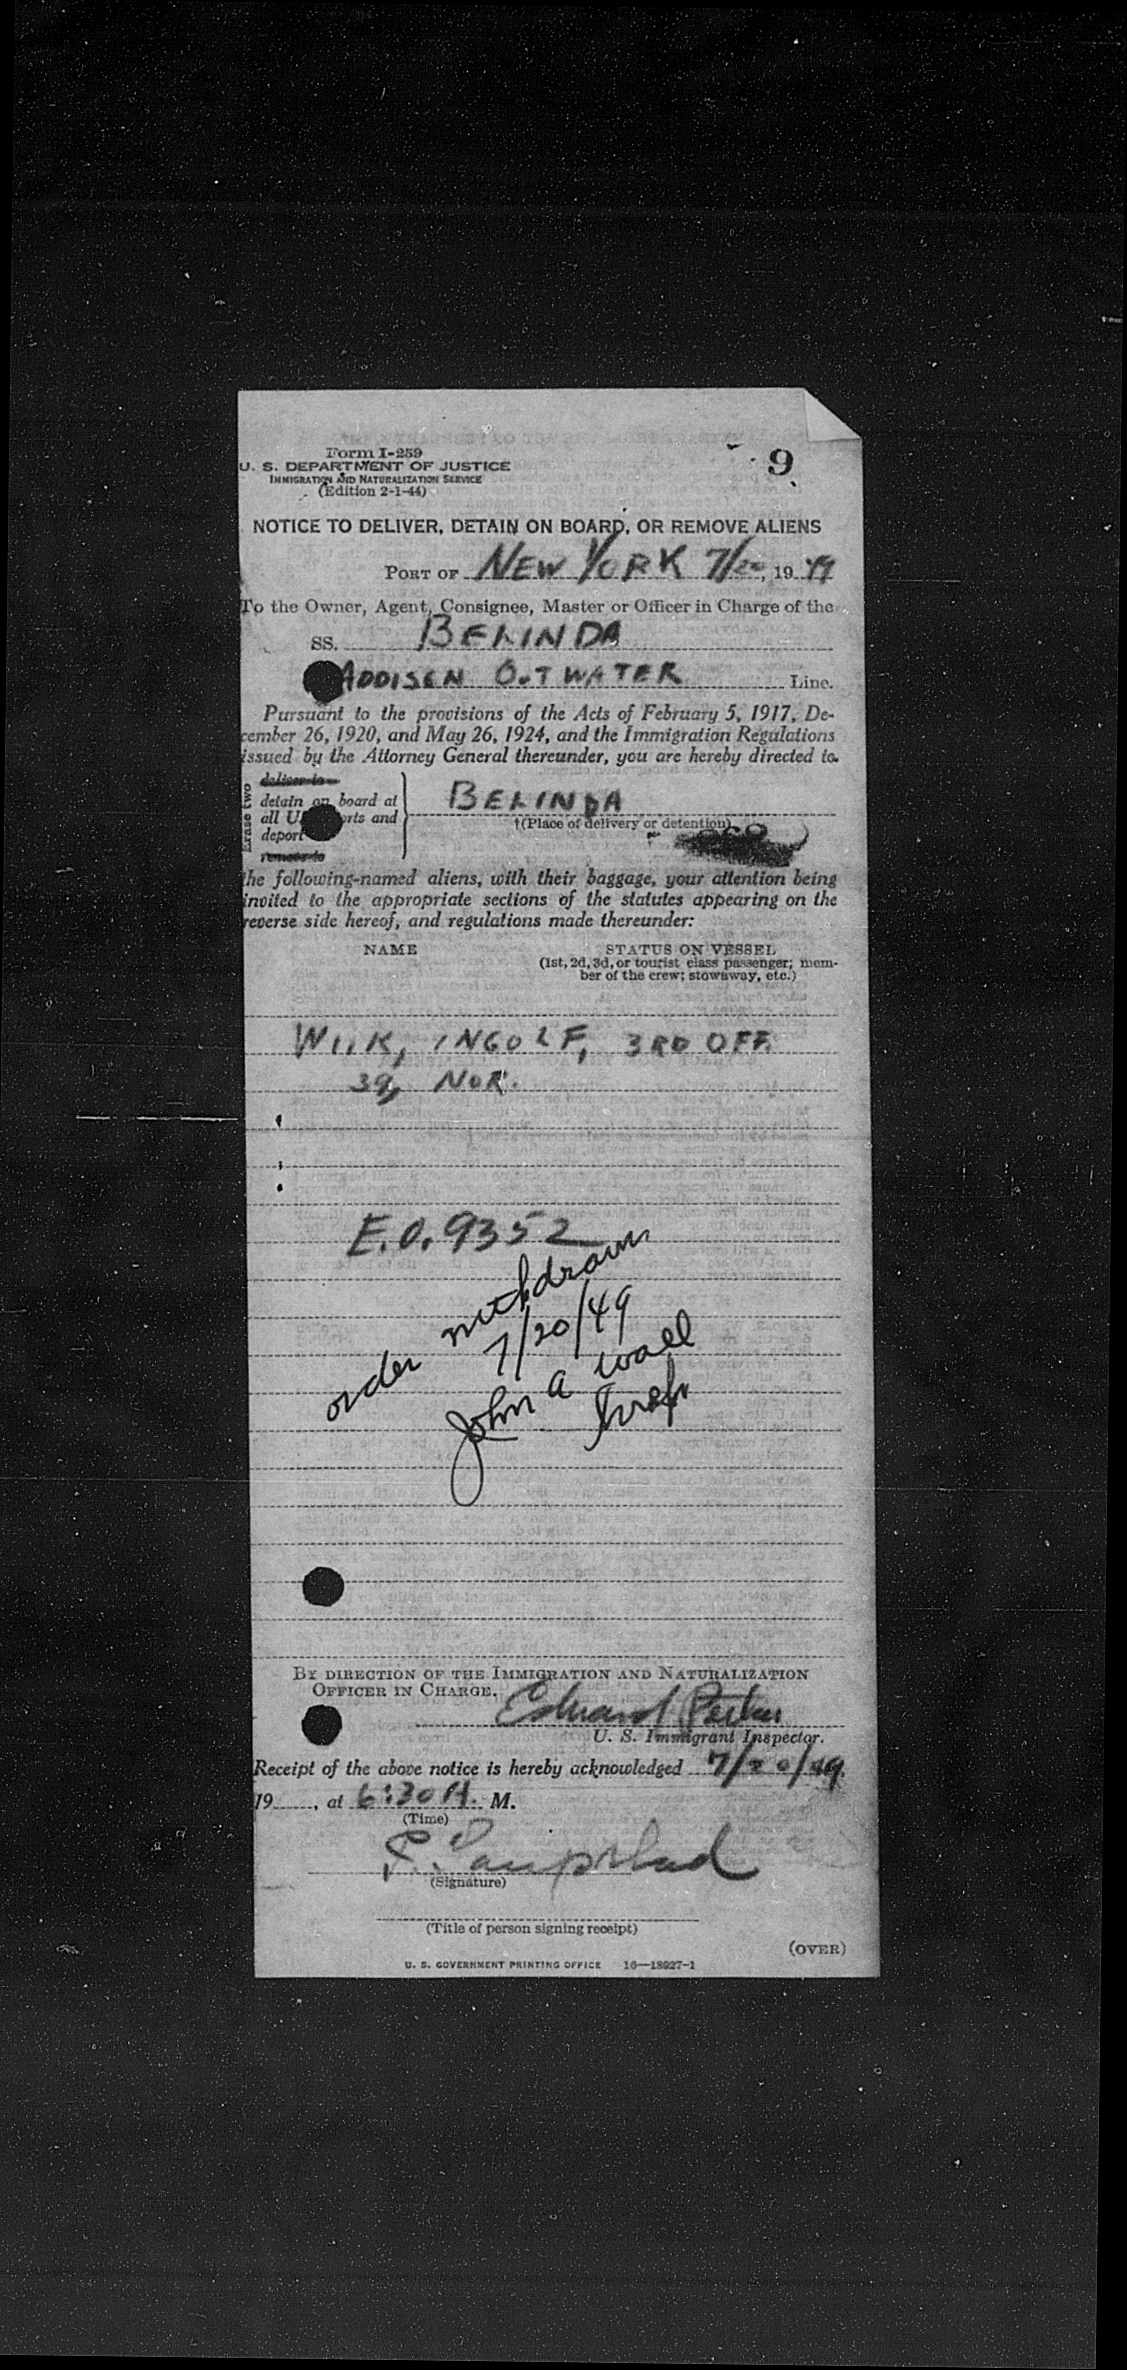 Form I-259
U. S. DEPARTMENT OF JUSTICE
IMMIGRATION AND NATURALIZATION SERVICE
(Edition 2-1-44)
9
NOTICE TO DELIVER, DETAIN ON BOARD, OR REMOVE ALIENS
PORT OF NEW YORK 7/20, 19 49
To the Owner, Agent, Consignee, Master or Officer in Charge of the
SS. BELINDA
ADDISON OUTWATER Line.
Pursuant to the provisions of the Acts of February 5, 1917, De-
cember 26, 1920, and May 26, 1924, and the Immigration Regulations
issued by the Attorney General thereunder, you are hereby directed to
Erase two
deliver to
detain on board at
all U. ports and
deport
remove to
BELINDA
†(Place of delivery or detention)
the following-named aliens, with their baggage, your attention being
invited to the appropriate sections of the statutes appearing on the
reverse side hereof, and regulations made thereunder:
NAME STATUS ON VESSEL
(1st, 2d, 3d, or tourist class passenger; mem-
ber of the crew; stowaway, etc.)
WIIK, INGOLF, 3RD OFF.
39, NOR.
E.O. 9352
order withdrawn
7/20/49
John A Wall
Insp
BY DIRECTION OF THE IMMIGRATION AND NATURALIZATION
OFFICER IN CHARGE.
Edward
U. S. Immigrant Inspector.
Receipt of the above notice is hereby acknowledged 7/20/49
19 , at 6:30 A. M.
(Time)
(Signature)
(Title of person signing receipt)
(OVER)
U. S. GOVERNMENT PRINTING OFFICE 16—18927-1